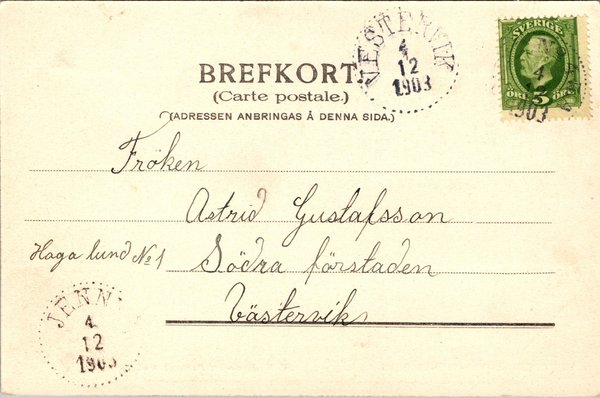 VESTERVIK
4
12
1903
SVERIGE
5
ÖRE
4
12
1903
BREFKORT.
(Carte postale.)
(ADRESSEN ANBRINGAS Å DENNA SIDA.)
Fröken
Astrid Gustafsson
Haga lund No 1
Södra förstaden
Västervik
JENN
4
12
1903